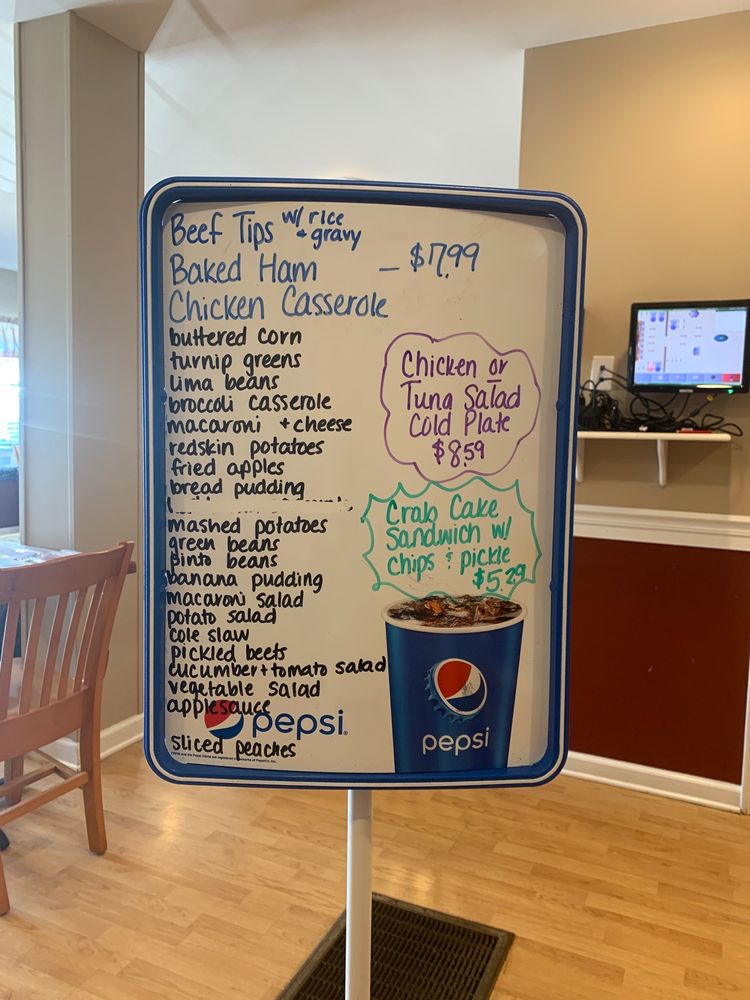 Beef Tips w/ rice
+ gravy
Baked Ham - $7.99
Chicken Casserole
buttered corn
turnip greens
lima beans
broccoli casserole
macaroni + cheese
redskin potatoes
fried apples
bread pudding
mashed potatoes
green beans
pinto beans
banana pudding
macaroni salad
potato salad
cole slaw
pickled beets
cucumber + tomato salad
vegetable salad
applesauce
pepsi
sliced peaches
Chicken or
Tuna Salad
Cold Plate
$8.59
Crab Cake
Sandwich w/
chips & pickle
$5.29
pepsi